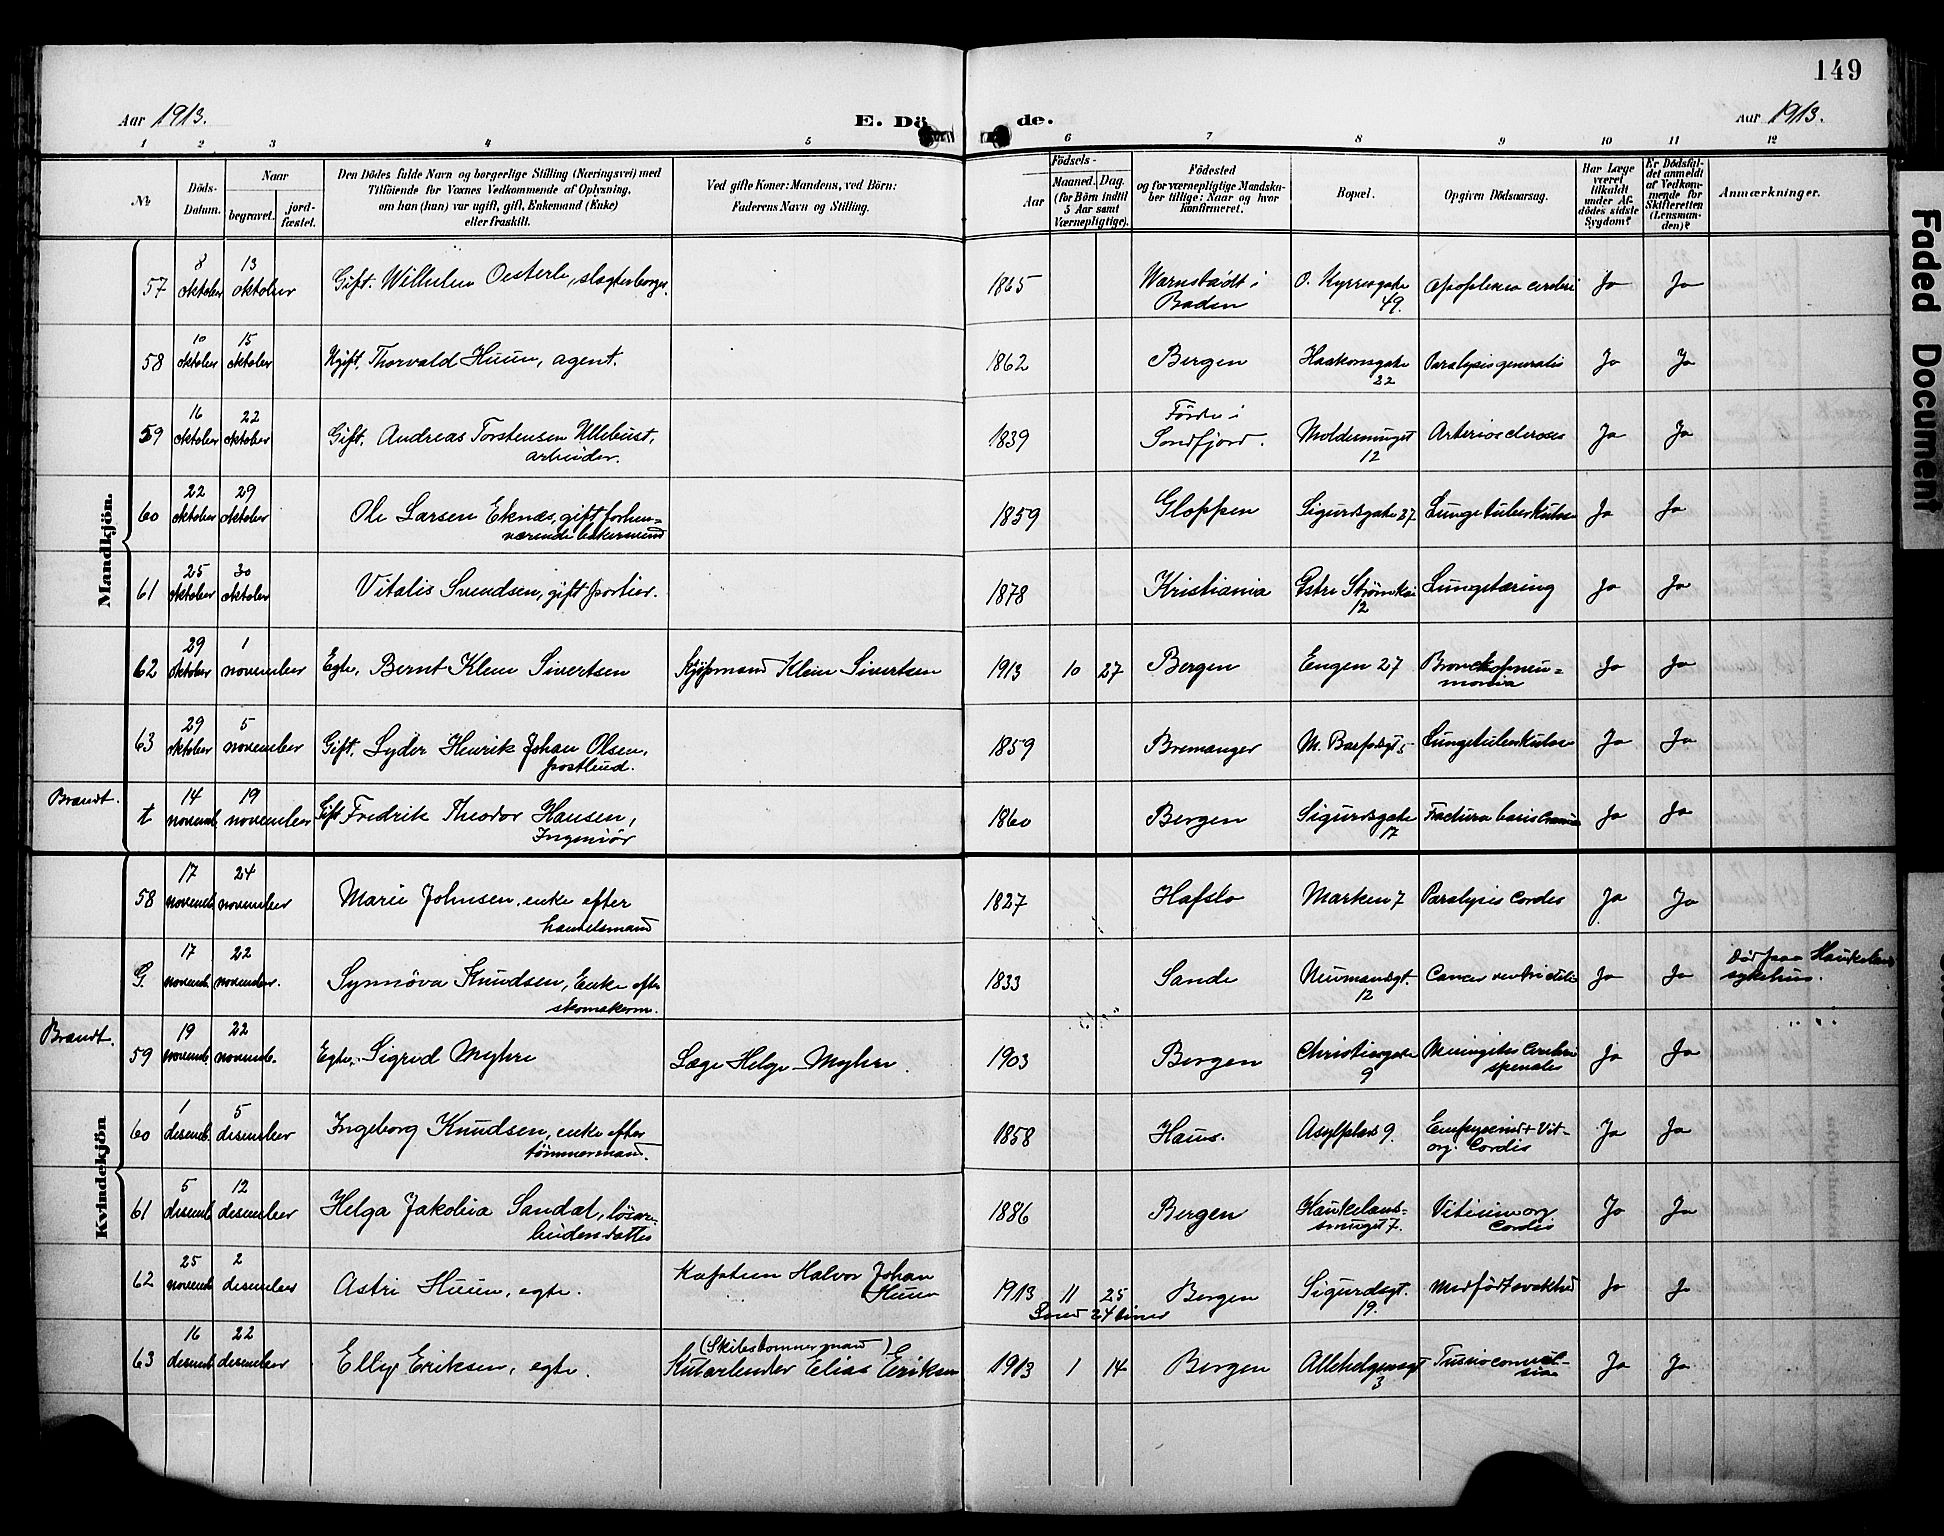 149
Aar 1913.
E. Dö de.
Aar 1913.
1 2 3 4 5 6 7 8 9 10 11 12
№
Döds-
Datum.
Naar
begravet.
jord-
fæstet.
Den Dödes fulde Navn og borgerlige Stilling (Næringsvei) med
Tilföiende for Voxnes Vedkommende af Oplysning,
om han (hun) var ugift, gift, Enkemand (Enke)
eller fraskilt.
Ved gifte Koner: Mandens, ved Börn:
Faderens Navn og Stilling.
Födsels-
Aar
Maaned. Dag.
(for Börn indtil
5 Aar samt
Værnepligtige).
Födested
og for værnepligtige Mandska-
ber tillige: Naar og hvor
konfirmeret.
Bopæl.
Opgiven Dödsaarsag.
Har Læge
været
tilkaldt
under Af-
dödes sidste
Sygdom?
Er Dödsfal-
det anmeldt
af Vedkom-
mende for
Skifteretten
(Lensman-
den)?
Anmærkninger.
Mandkjön.
57 8 oktober 13 oktober Gift. Wilhelm Oesterle, slagterborger. 1865 Warnstädt i Baden O. Kyrresgate 49. apoplexia cerebri Ja Ja
58 10 oktober 15 oktober Ugift. Thorvald Huun, agent. 1862 Bergen Haakonsgate 22 Paralysis generalis Ja Ja
59 16 oktober 22 oktober Gift. Andreas Torstensen Ullebust, arbeider. 1839 Förde i Söndfjord. Moldesmuget 12 Arteriosclerosis Ja Ja
60 22 oktober 29 oktober Ole Larsen Eknæs, gift, forhen=
værende bakermand 1859 Gloppen Sigurdsgate 27 Lungetuberkulose Ja Ja
61 25 oktober 30 oktober Vitalis Svendsen, gift portier. 1878 Kristiania Østre Strømkai 12 Lungetæring Ja Ja
62 29 oktober 1 november Egte, Bernt Klem Sivertsen Kjøpmand Klem Sivertsen 1913 10 27 Bergen Engen 27 Bronchopneu=
monia Ja Ja
63 29 oktober 5 november Gift. Lyder Henrik Johan Olsen, postbud. 1859 Bremanger M. Bæfjdsgt 5 Lungetuberkulose Ja Ja
Brandt. t 14 novemb. 19 november Gift Fredrik Theodor Hansen, Ingeniör 1860 Bergen Sigurdsgate 17 Factura basis cranii Ja Ja
Kvindekjön
58 17 novemb. 24 november Marie Johnsen, enke efter handelsmand 1827 Hafslo Marken 7 Paralysis Cordis Ja Ja
G. 17 novemb. 22 november. Synnöva Knudsen, Enke efter skomakerm. 1833 Sande Neumansgt. 12 Cancer ventriculi Ja Ja Död paa Haukeland sykehus.
Brandt. 59 19 novemb. 22 novemb. Egte, Sigrid Myhre Læge Helge Myhre. 1903 Bergen Christiesgate 9 Meningitis Cerebro spinalis Ja Ja
60 1 desemb. 5 desember Ingeborg Knudsen, enke efter tömmermand. 1858 Haus. Asylplads 9. Emfysem + Vit- org. Cordis Ja Ja
61 5 desemb. 12 desember Helga Jakobia Sandal, lösar-
beiders datter 1886 Bergen Haukelands-
smuget 7. Vitium org Cordis Ja Ja
62 25 novemb. 2 desember Astri Huun, egte. Kaptein Halvor Johan Huun 1913 11 25 Bergen Sigurdsgt. 19. Medfödt svakhed Ja Ja
Leved 24 timer
63 16 desemb. 22 desember Elly Eriksen, egte. (Skibstömmermand)
Kutarbeider Elias Eriksen 1913 1 14 Bergen Allehelgensgt 3 Tussis convul-
siva Ja Ja
Faded Document